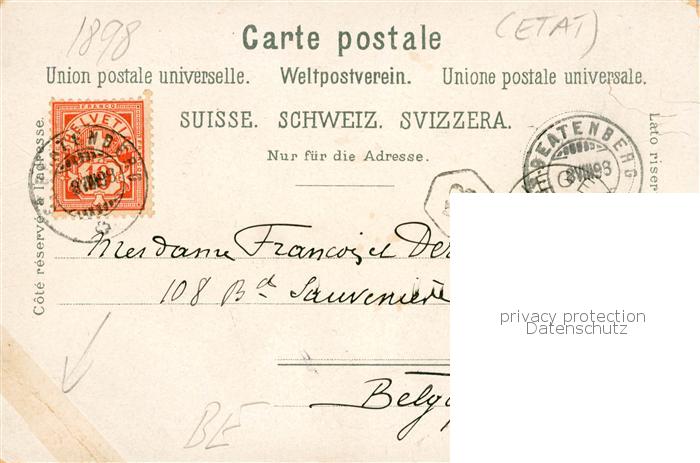 1898
(ETAT)
Carte postale
Union postale universelle. Weltpostverein. Unione postale universale.
SUISSE. SCHWEIZ. SVIZZERA.
Nur für die Adresse.
Côté réservé à l'adresse.
Lato riser
FRANCO
HELVETIA
10
BEATENBERG
8 VIII 98
Mesdame Francois et De
108 Bd Sauvenière
Belg
BE
privacy protection
Datenschutz